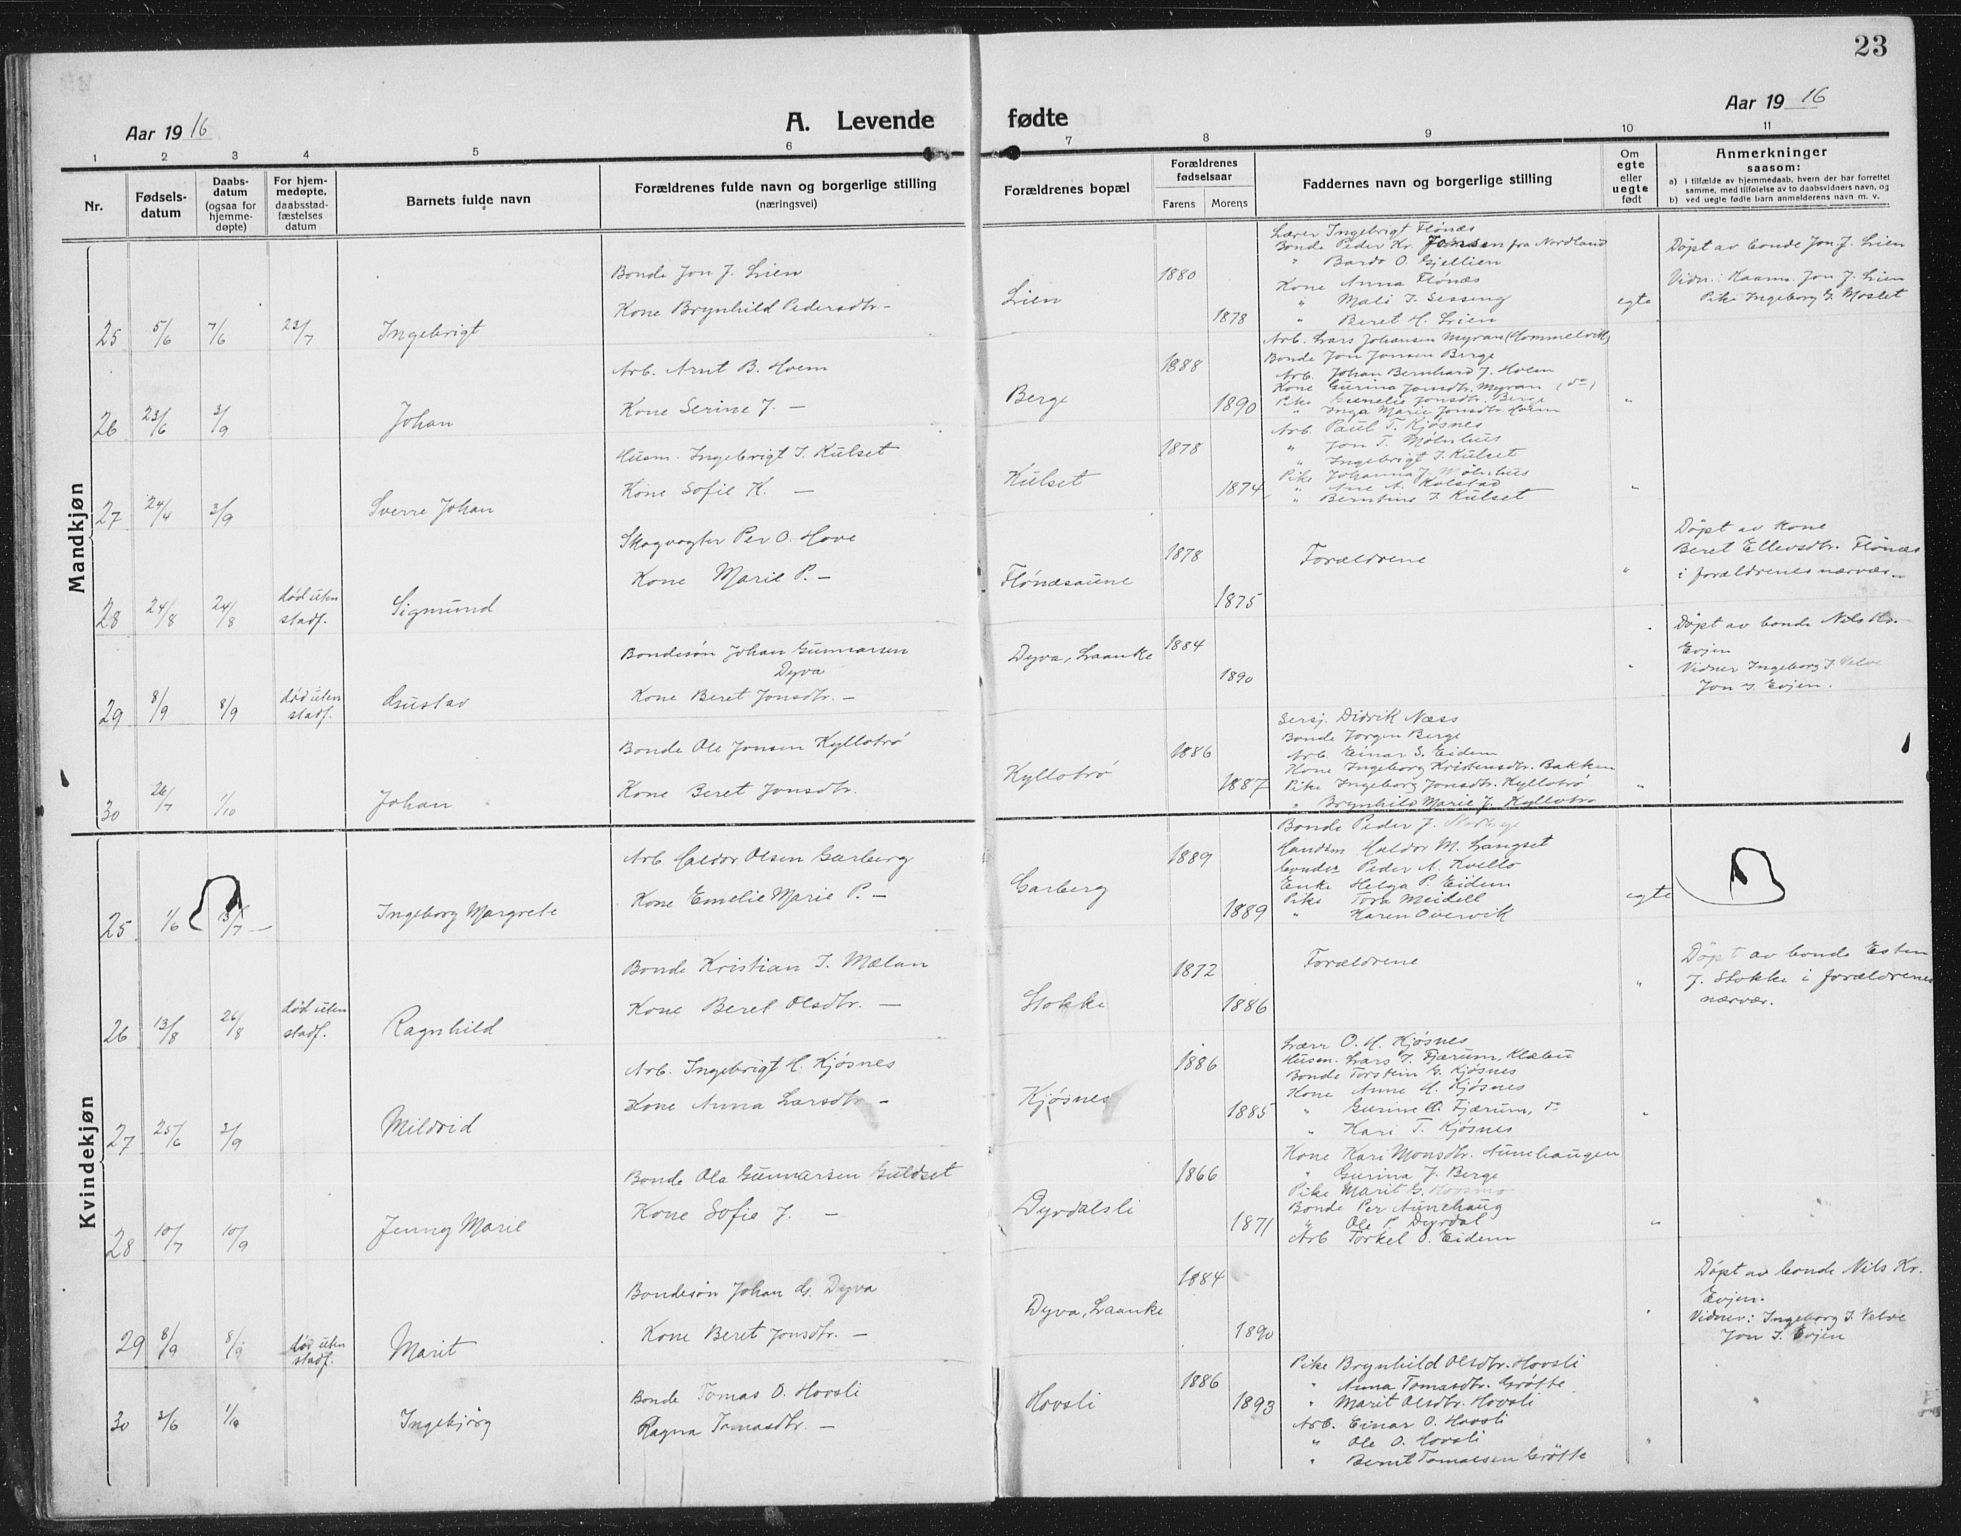 23
Aar 19 16
A. Levende
fødte
Aar 19 16
1 2 3 4 5 6 7 8 9 10 11
Nr.
Fødsels-
datum
Daabs-
datum
(ogsaa for
hjemme-
døpte)
For hjem-
medøpte,
daabsstad-
fæstelses
datum
Barnets fulde navn
Forældrenes fulde navn og borgerlige stilling
(næringsvei)
Forældrenes bopæl
Forældrenes
fødselsaar
Farens
Morens
Faddernes navn og borgerlige stilling
Om
egte
eller
uegte
født
Anmerkninger
saasom:
a) i tilfælde av hjemmedaab, hvem der har forrettet
samme, med tilføielse av to daabsvidners navn, og
b) ved uegte fødte barn anmelderens navn m. v.
Mandkjøn
25 5/6 7/6 23/7 Ingebrigt
Bonde Jon J. Lien
Kone Brynhild Pedersdtr. –
Lien
1880
1878
Lærer Ingebrigt Flönæs
Bonde Peder Kr. Jensen fra Nordland
" Bardo O. Gjellien
Kone Anna Flönæs
" Mali J. Sessing
" Beret H. Lien
egte
Döpt av bonde Jon J. Lien
Vidn.: Kaarm. Jon J. Lien
Pike Ingeborg G. Moslet
26 23/6 3/9 Johan
Arb. Arnt B. Hoem
Kone Serine J. –
Berge
1888
1890
Arb. Lars Johansen Myran (Hommelvik)
Bonde Jon Jonsen Berge
Arb. Johan Bernhard J. Hoem
Kone Gurina Jonsdtr. Myran (do)
Pike Gunelie Jonsdtr. Berge
" Inga Marie Jonsdtr. Hoem
"
27 24/4 3/9 Sverre Johan
Husm. Ingebrigt I. Kulset
Kone Sofie K. –
Kulset
1878
1874
Arb. Paul T. Kjøsnes
" Jon T. Mølnhus
" Ingebrigt I. Kulset
Pike Johanna J. Mölnhus
" Ane A. Kolstad
" Berntine I. Kulset
"
28 24/8 24/8 död uten
stadf. Sigmund
Skogvogter Per O. Hove
Kone Marie P. –
Flönæsaune
1878
1875
Forældrene
"
Döpt av kone
Beret Ellevsdtr. Flönæs
i forældrenes nærvær.
29 8/9 8/9 död uten
stadf. Gustav
Bondesön Johan Gunnarsen
Dyva
Kone Beret Jonsdtr. –
Dyva, Laanke
1884
1890
"
Döpt av bonde Nils Kr.
Evjen
Vidner Ingeborg I. Velve
Jon I. Evjen.
30 26/7 1/10 Johan
Bonde Ole Jonsen Kyllotrö
Kone Beret Jonsdtr.
Kyllotrö
1886
1887
Sersj. Didrik Næss
Bonde Jørgen Berge
Arb. Einar S. Eidem
Kone Ingeborg Kristensdtr. Bakken
Pike Ingeborg Jonsdtr. Kyllotrö
" Brynhild Marie J. Kyllotrö
"
Kvindekjøn
25 1/6 /7 Ingeborg Margrete
Arb. Haldor Olsen Garberg
Kone Emelie Marie P. –
Garberg
1889
1889
Bonde Peder J.
Handsm. Haldor M. Langset
Peder A. Kvello
Enke Helga P. Eidem
Pike Tora Meidell
" Karen Overvik
egte
26 13/8 26/8 död uten
stadf. Ragnhild
Bonde Kristian I. Mælan
Kone Beret Olsdtr. –
Stokke
1872
1886
Forældrene
"
Döpt av bonde Esten
J. Stokke i forældrenes
nærvær.
27 25/6 3/9 Mildrid
Arb. Ingebrigt H. Kjøsnes
Kone Anna Larsdtr. –
Kjøsnes
1886
1885
Lærer O. H. Kjøsnes
Husm. Lars J. Fjærum, Klæbu
Bonde Torstein G. Kjøsnes
Kone Anne H. Kjøsnes
" Gurine O. Fjærum, do
" Kari T. Kjøsnes
"
28 10/7 10/9 Jenny Marie
Bonde Ola Gunnarsen Guldset
Kone Sofie J. –
Dyrdalsli
1866
1871
Kone Kari Monsdtr. Aunehaugen
" Gurina J. Berge
Pike Marit G.
Bonde Per Aunehaug
" Ole P. Dyrdal
Arb Torkel O. Eidem
"
29 8/9 8/9 död uten
stadf. Marit
Bondesön Johan G. Dyva
Kone Beret Jonsdtr. –
Dyva, Laanke
1884
1890
"
Döpt av bonde Nils Kr.
Evjen.
Vidner: Ingeborg I. Velve
Jon I. Evjen
30 3/6 1/10 Ingebjörg
Bonde Tomas O. Hovsli
Ragna Tomasdtr. –
Hovsli
1886
1893
Pike Brynhild Olsdtr. Hovsli
" Anna Tomasdtr. Gröfte
" Marit Olsdtr. Hovsli
Arb. Einar O. Hovsli
" Ole O. Hovsli
" Bernt Tomassen Gröfte